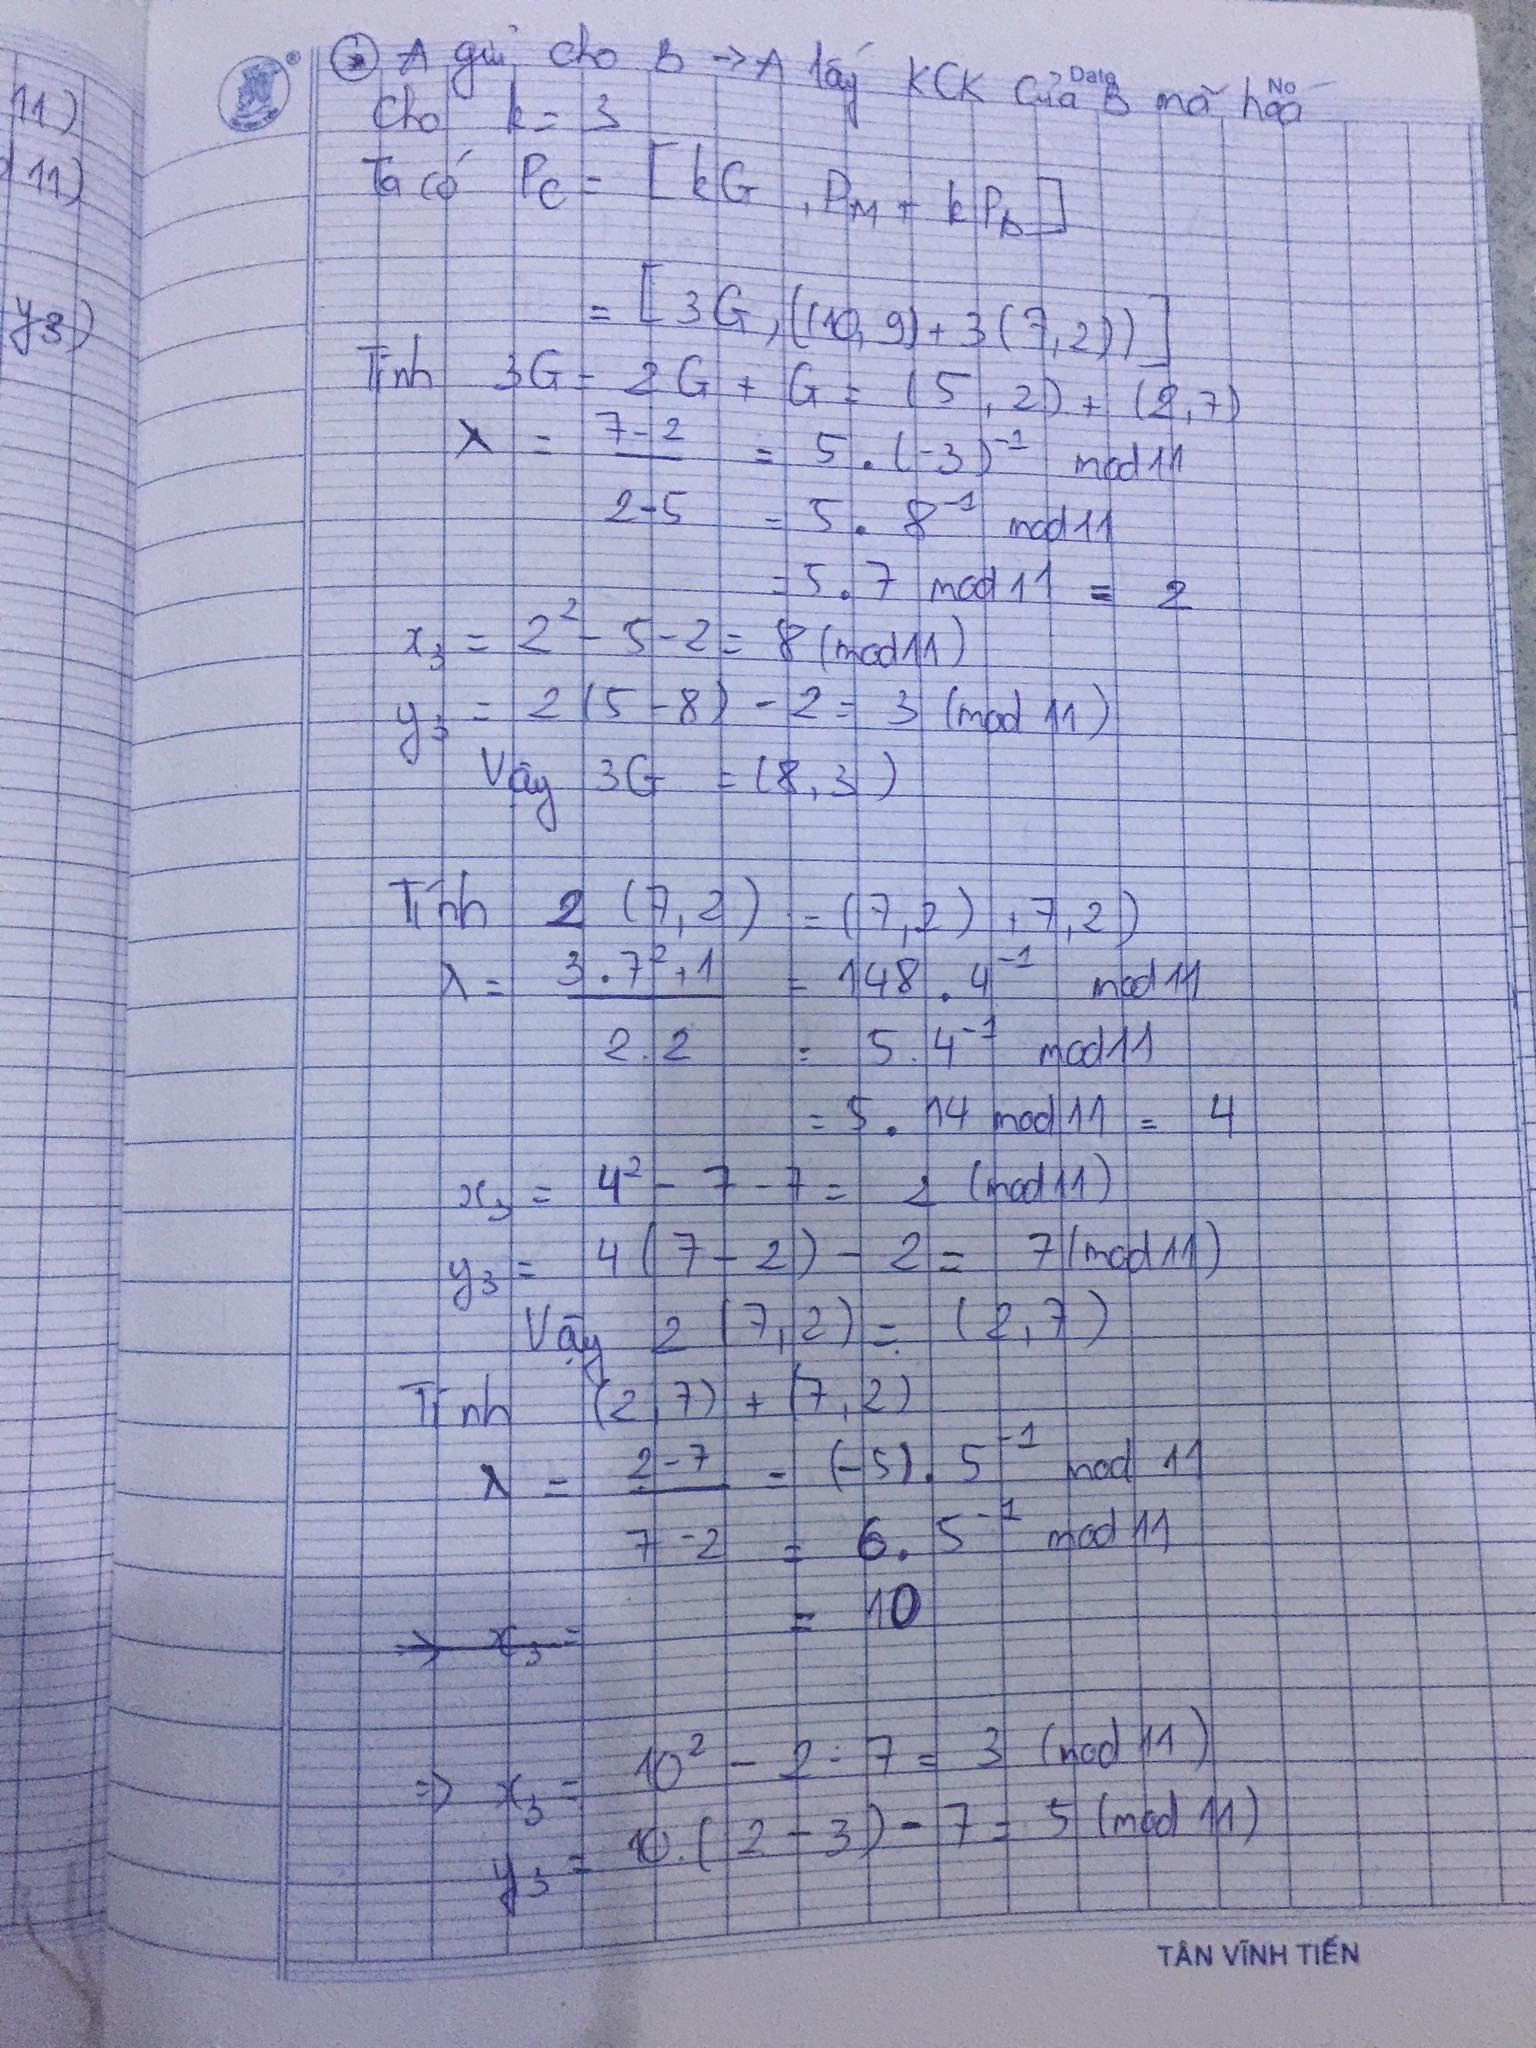 11)
d 11)
y3)
®
Date
No
* A gửi cho B → A lấy KCK của B mã hoá
Cho k = 3
Ta có PC = [kG, PM + kPB]
= [3G, ((10,9) + 3(7,2))]
Tính 3G = 2G + G = (5, 2) + (2,7)
λ = 7-2 / 2-5 = 5 . (-3)⁻¹ mod 11
= 5 . 8⁻¹ mod 11
= 5 . 7 mod 11 = 2
x3 = 2² - 5 - 2 = 8 (mod 11)
y3 = 2(5 - 8) - 2 = 3 (mod 11)
Vậy 3G = (8, 3)
Tính 2 (7, 2) = (7, 2) + 7, 2)
λ = 3 . 7² + 1 / 2 . 2 = 148 . 4⁻¹ mod 11
= 5 . 4⁻¹ mod 11
= 5 . 14 mod 11 = 4
x3 = 4² - 7 - 7 = 2 (mod 11)
y3 = 4(7 - 2) - 2 = 7 (mod 11)
Vậy 2 (7, 2) = (2, 7)
Tính (2, 7) + (7, 2)
λ = 2 - 7 / 7 - 2 = (-5) . 5⁻¹ mod 11
= 6 . 5⁻¹ mod 11
= 10
⇒ x3 =
⇒ x3 = 10² - 2 - 7 = 3 (mod 11)
y3 = 10.(2 - 3) - 7 = 5 (mod 11)
TÂN VĨNH TIẾN